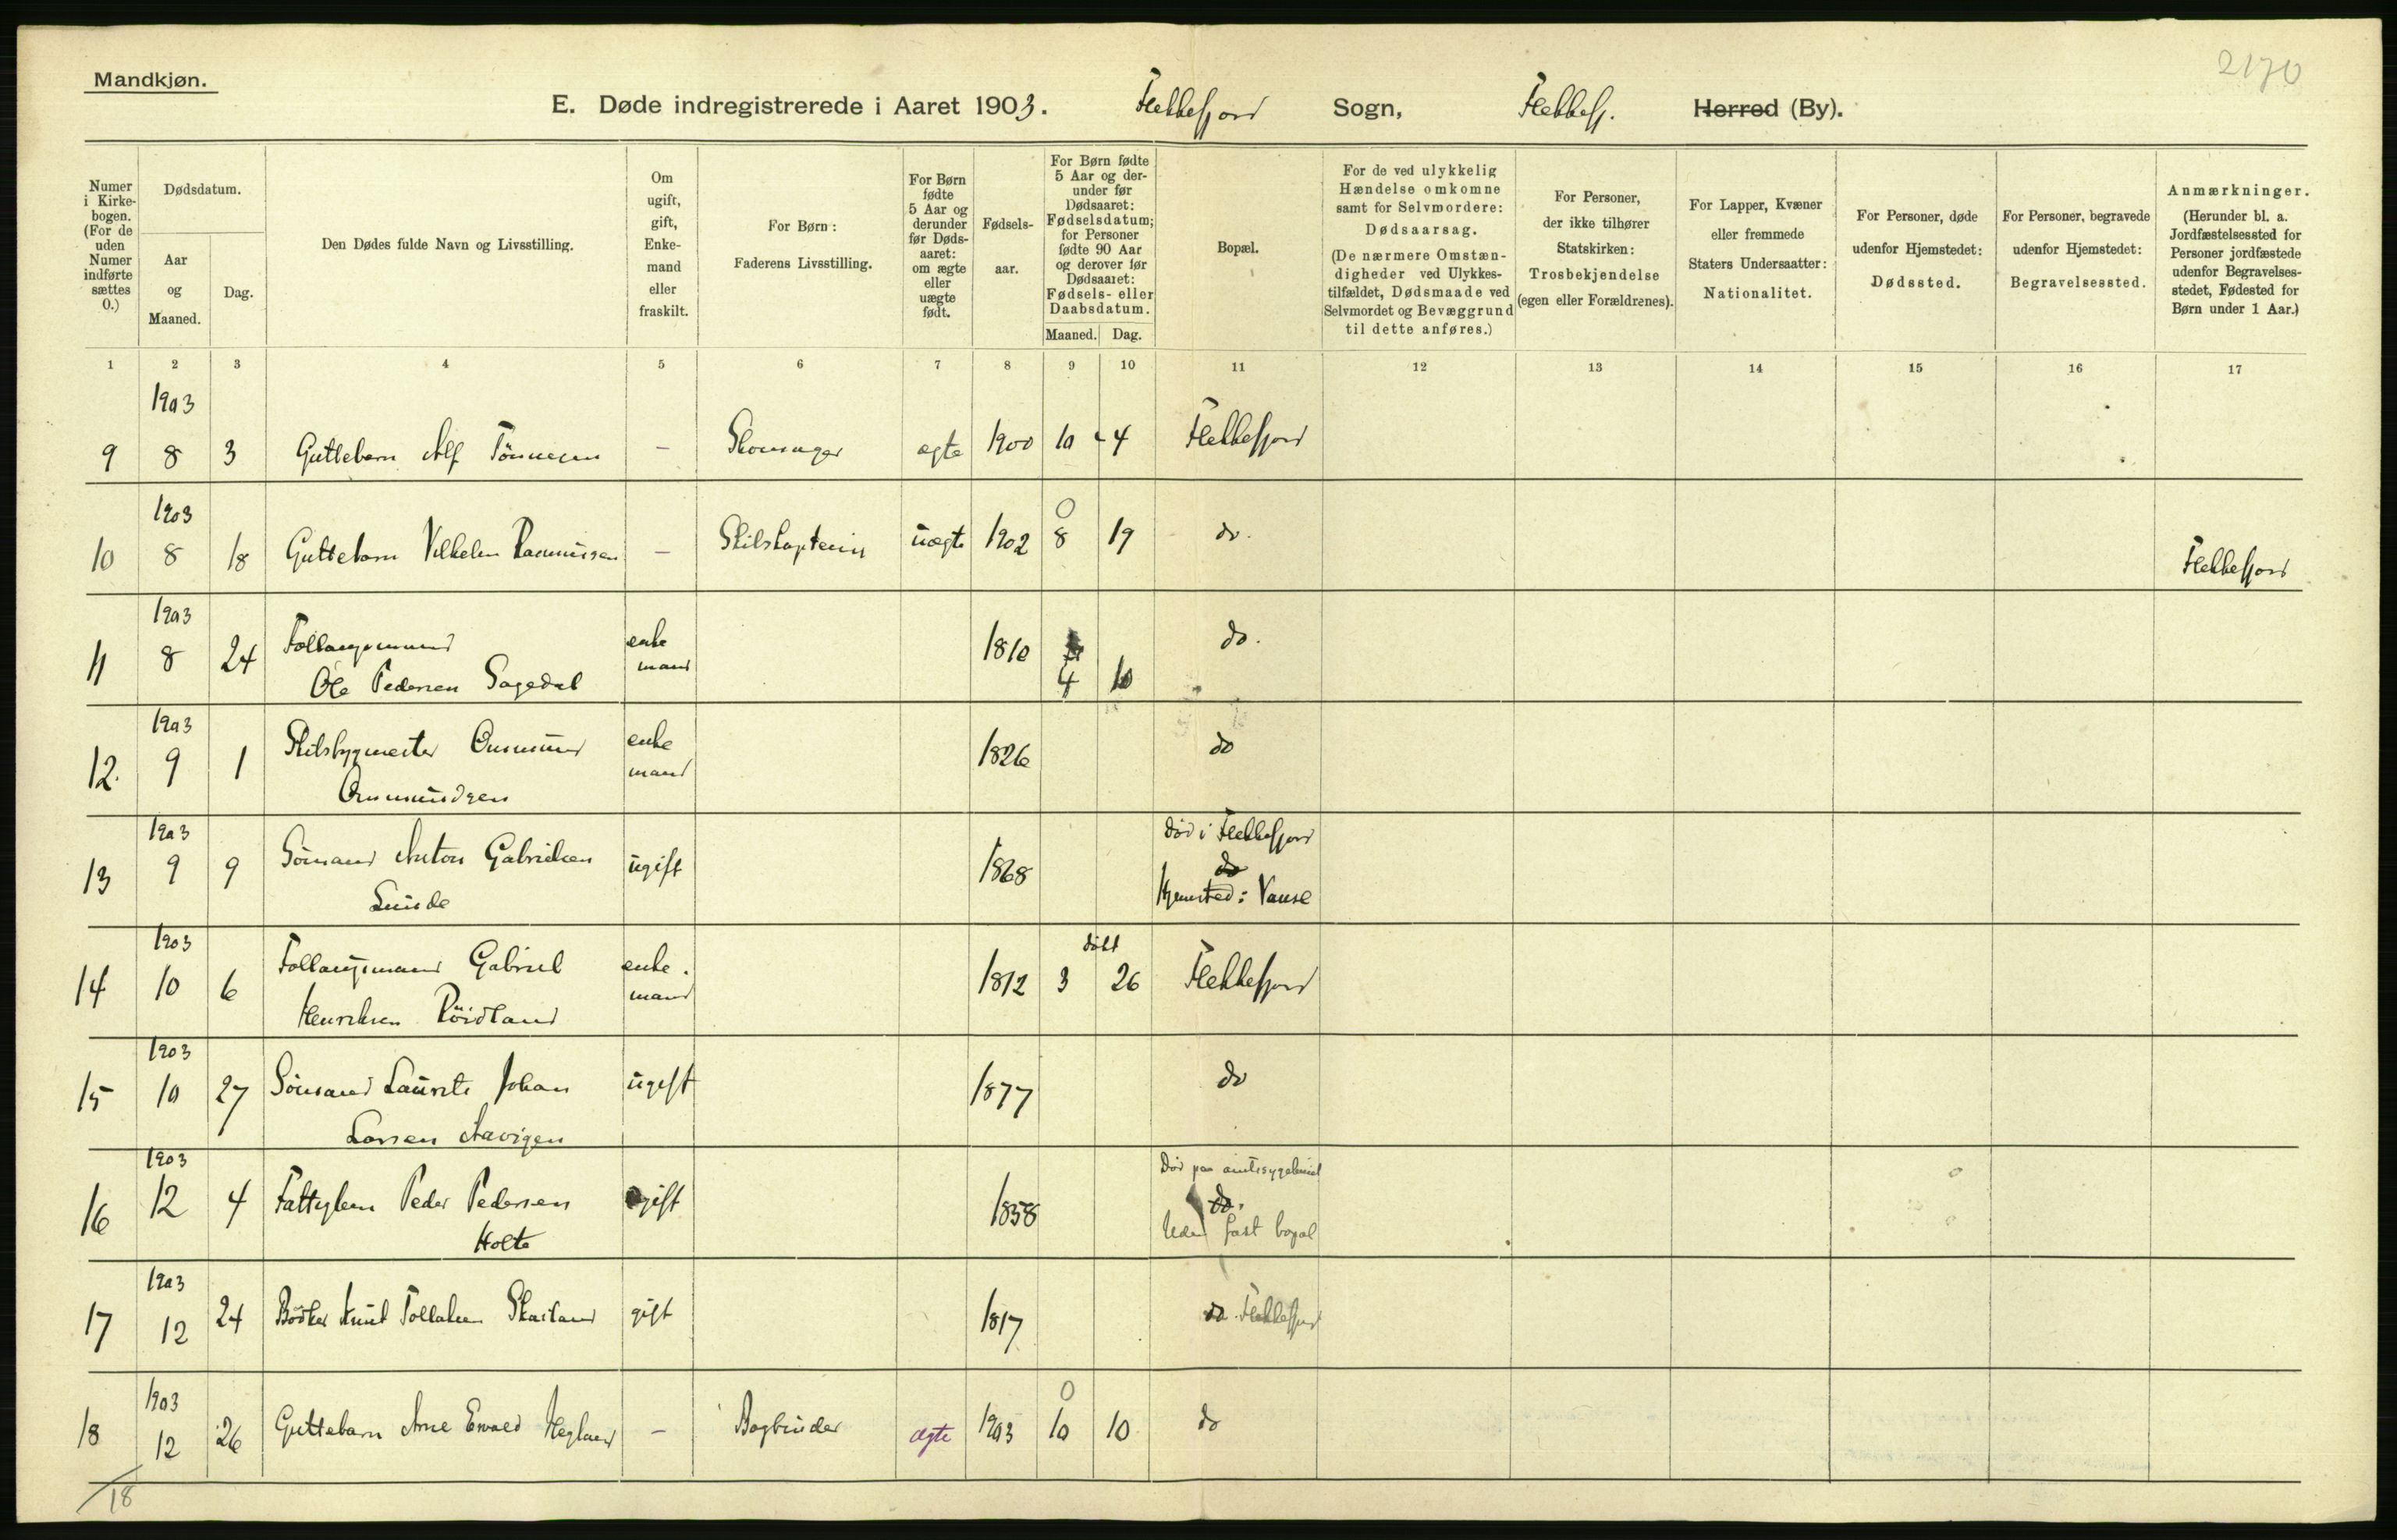 2170
Mandkjøn.
E. Døde indregistrerede i Aaret 1903. Flekkefjord Sogn, Flekkefj. Herred (By).
Numer i Kirkebogen. (For de uden Numer indførte sættes 0.)
Dødsdatum.
Aar og Maaned.
Dag.
Den Dødes fulde Navn og Livsstilling.
Om ugift, gift, Enkemand eller fraskilt.
For Børn: Faderens Livsstilling.
For Børn fødte 5 Aar og derunder før Dødsaaret: om ægte eller uægte født.
Fødselsaar.
For Børn fødte 5 Aar og derunder før Dødsaaret: Fødselsdatum; for Personer fødte 90 Aar og derover før Dødsaaret: Fødsels- eller Daabsdatum.
Maaned. Dag.
Bopæl.
For de ved ulykkelig Hændelse omkomne samt for Selvmordere: Dødsaarsag. (De nærmere Omstændigheder ved Ulykkestilfældet, Dødsmaade ved Selvmordet og Bevæggrund til dette anføres.)
For Personer, der ikke tilhører Statskirken: Trosbekjendelse (egen eller Forældrenes).
For Lapper, Kvæner eller fremmede Staters Undersaatter: Nationalitet.
For Personer, døde udenfor Hjemstedet: Dødssted.
For Personer, begravede udenfor Hjemstedet: Begravelsessted.
Anmærkninger. (Herunder bl. a. Jordfæstelsessted for Personer jordfæstede udenfor Begravelsesstedet, Fødested for Børn under 1 Aar.)
1 2 3 4 5 6 7 8 9 10 11 12 13 14 15 16 17
1903
9 8 3 Guttebarn Alf Tönnesen — Skomager ægte 1900 10 4 Flekkefjord
1903 0
10 8 18 Guttebarn Vilhelm Rasmussen — Skibskaptein uægte 1902 8 19 do. Flekkefjord
1903
11 8 24 Follaugsmand enke 1810 do.
Ole Pedersen Sagedal mand 4 10
1903
12. 9 1 Skibsbygmester Onmund enke 1826 do
Onmundsen mand
1903 död i Flekkefjord
13 9 9 Sömand Anton Gabrielsen ugift 1868 do
Lunde Hjemsted: Vanse
1903 döbt
14 10 6 Follaugsmand Gabriel enke 1812 3 26 Flekkefjord
Henriksen Röidland mand
1903
15 10 27 Sömand Laurits Johan ugift 1877 do
Larsen Aavigen
1903 Död paa amtssygehuset
16 12 4 Fattiglem Peder Pedersen gift 1838 do.
Holte Uden fast bopæl
1903
17 12 24 Bödker Knut Tollaksen Skailand gift 1817 do. Flekkefjord
1903 0
18 12 26 Guttebarn Arne Ewald Hegland — Bogbinder ægte 1903 10 10 do
18